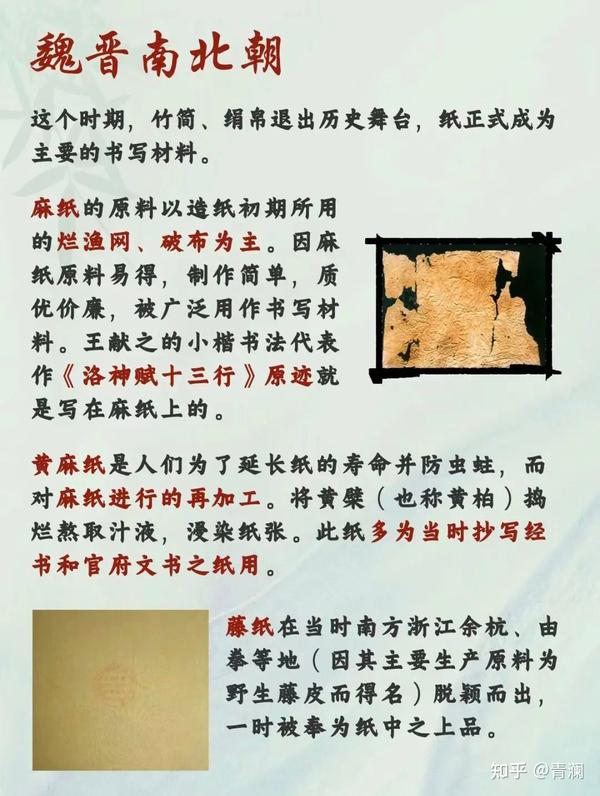 魏晋南北朝
这个时期，竹简、绢帛退出历史舞台，纸正式成为
主要的书写材料。
麻纸的原料以造纸初期所用
的烂渔网、破布为主。因麻
纸原料易得，制作简单，质
优价廉，被广泛用作书写材
料。王献之的小楷书法代表
作《洛神赋十三行》原迹就
是写在麻纸上的。
黄麻纸是人们为了延长纸的寿命并防虫蛀，而
对麻纸进行的再加工。将黄檗（也称黄柏）捣
烂熬取汁液，浸染纸张。此纸多为当时抄写经
书和官府文书之纸用。
藤纸在当时南方浙江余杭、由
拳等地（因其主要生产原料为
野生藤皮而得名）脱颖而出，
一时被奉为纸中之上品。
知乎 @青澜